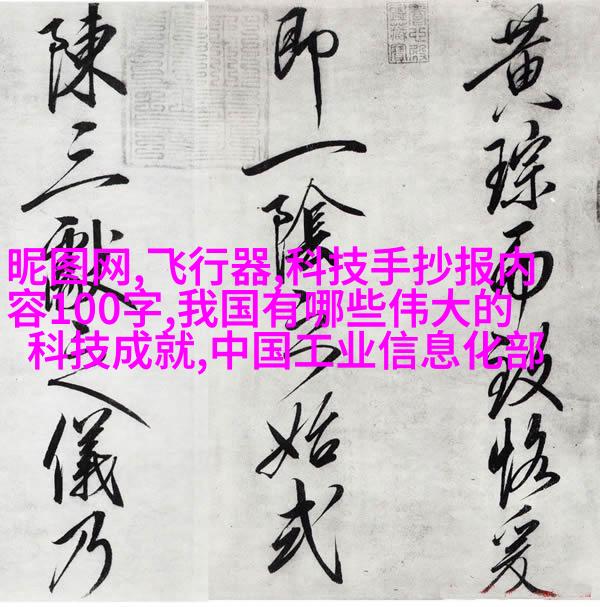 黄琮而致恪爰
即一陰之始式
陳三獻之儀乃
昵图网,飞行器,科技手抄报内
容100字,我国有哪些伟大的
科技成就,中国工业信息化部